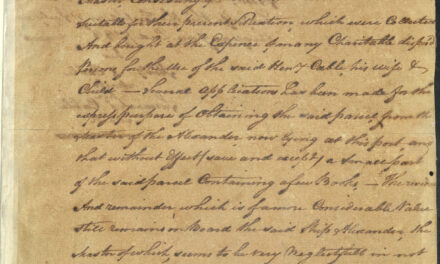 suitable for their present Situation, which were Collected
And bought at the Expence of many Charitable disposed
Persons for the Use of the said Henry Cable, his wife &
Child — Several Applications has been made for the
express purpose of Obtaining the said parcel from the
Master of the Alexander now lying at this port, and
that without Effect (save and except) a Small part
of the said parcel Containing a few Books, — The residue
And remainder which is of a more Considerable Value
Still remains on board the said Ship Alexander, the
Master of which, seems to be very Neglectfull in not